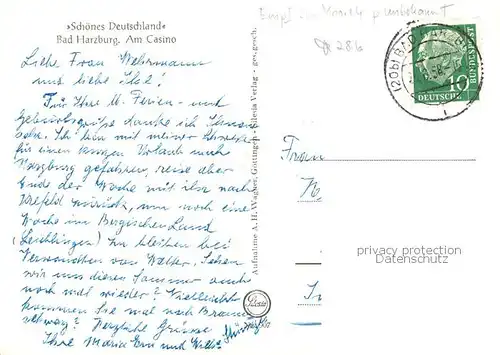 »Schönes Deutschland«
Bad Harzburg. Am Casino
Liebe Frau Wehrmann
und liebe Ilse!
Für Ihre lb. Ferien- und
Geburtsgrüße danke ich Ihnen
sehr. Ich bin mit meiner Schwester
für einen kurzen Urlaub nach
Harzburg gefahren, reise aber
Ende der Woche mit ihr nach
Krefeld zurück, um noch eine
Woche im Bergischen Land
(Leichlingen) zu bleiben bei
Verwandten von Walter. Sehen
wir uns diesen Sommer auch
noch mal wieder? Vielleicht
kommen Sie mal nach Braun-
schweig? Herzliche Grüsse
Ihre
Aufnahme A. H. Wagner, Göttingen - Cilesia Verlag - ges. gesch.
unbekannt
28.6
(20b) BAD
10
DEUTSCHE
BUNDESPOST
Frau
privacy protection
Datenschutz